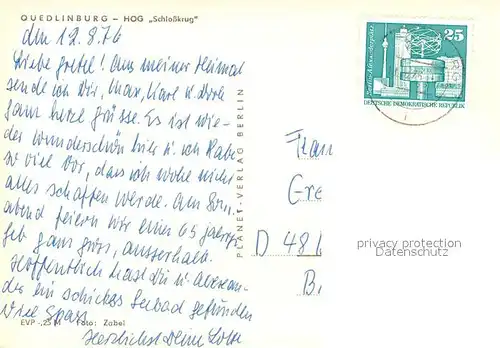 QUEDLINBURG – HOG „Schloßkrug"
den 12.8.76
Liebe Gretel! Aus meiner Heimat
sende ich Dir, Max, Karl u. Dore
ganz herzl Grüsse. Es ist wie-
der wunderschön hier u. ich habe
so viel vor, dass ich wohl nicht
alles schaffen werde. Am Sonn-
abend feiern wir einen 65 jährige
Geb ganz gross, ausserhalb.
Hoffentlich hast Du u Alexan-
der ein schickes Seebad gefunden
Viel Spass
Herzlichst Deine Lotte
EVP -,25 M Foto: Zabel
PLANET-VERLAG BERLIN
25
Berlin, Alexanderplatz
DEUTSCHE DEMOKRATISCHE REPUBLIK
Frau
Gre
D 48
B
privacy protection
Datenschutz